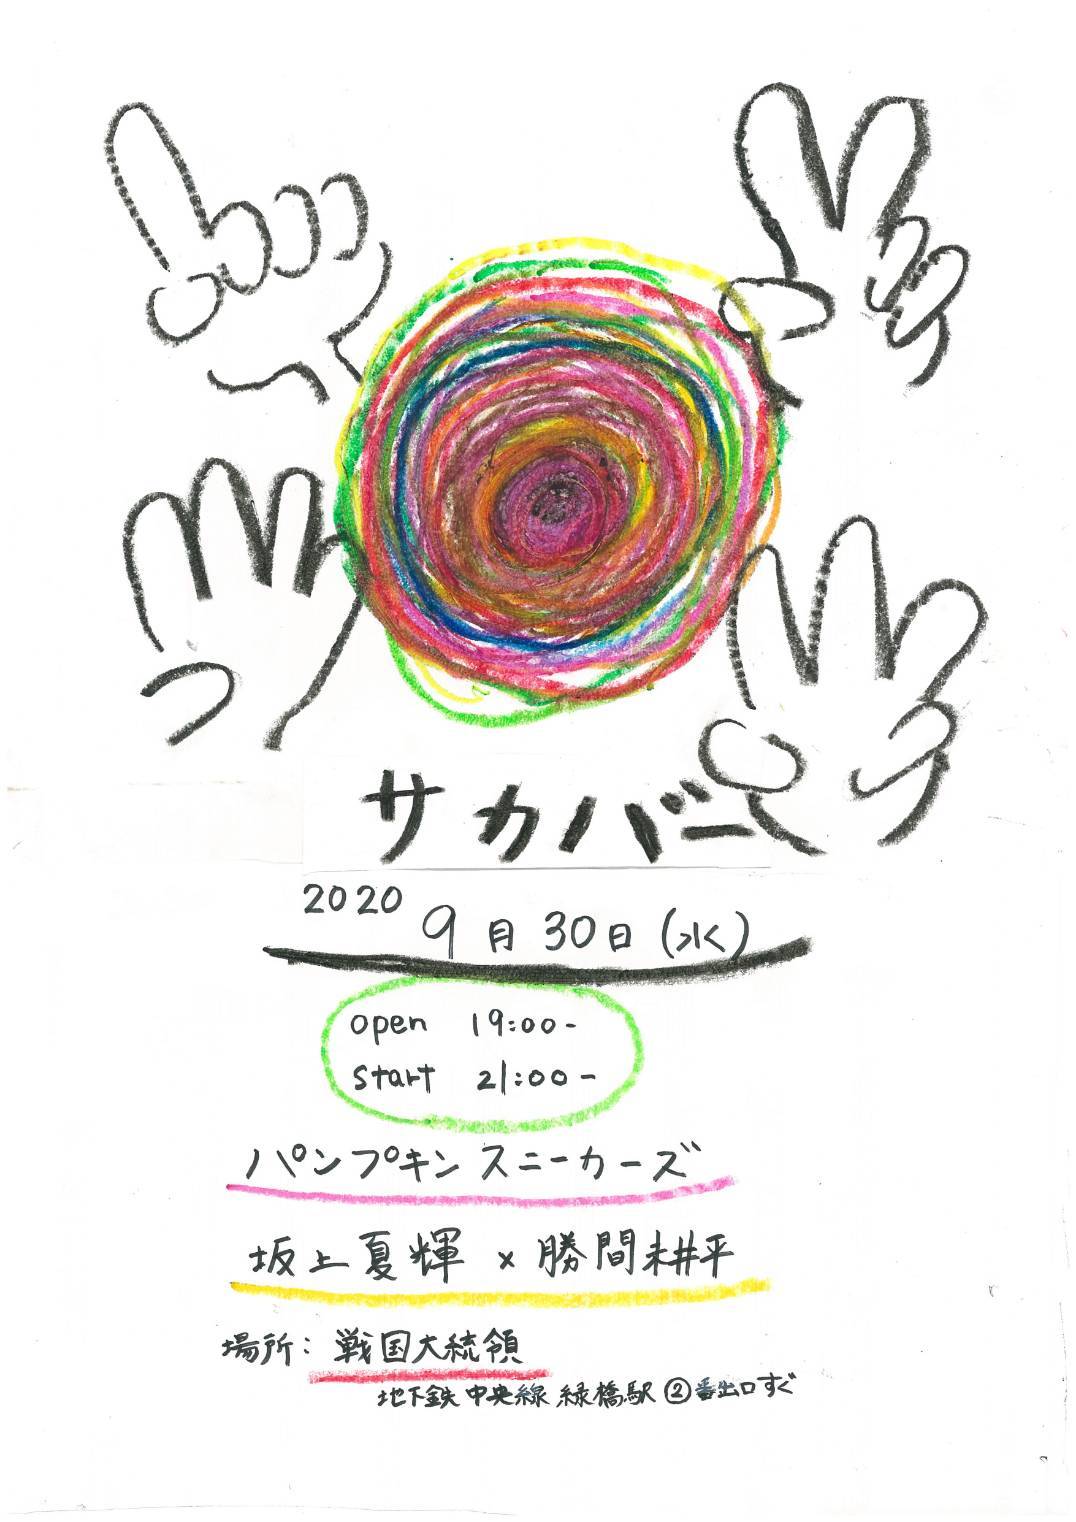 サカバー
2020 9月30日(水)
open 19:00-
start 21:00-
パンプキンスニーカーズ
坂上夏輝 × 勝間耕平
場所: 戦国大統領
地下鉄 中央線 緑橋駅 ②番出口すぐ